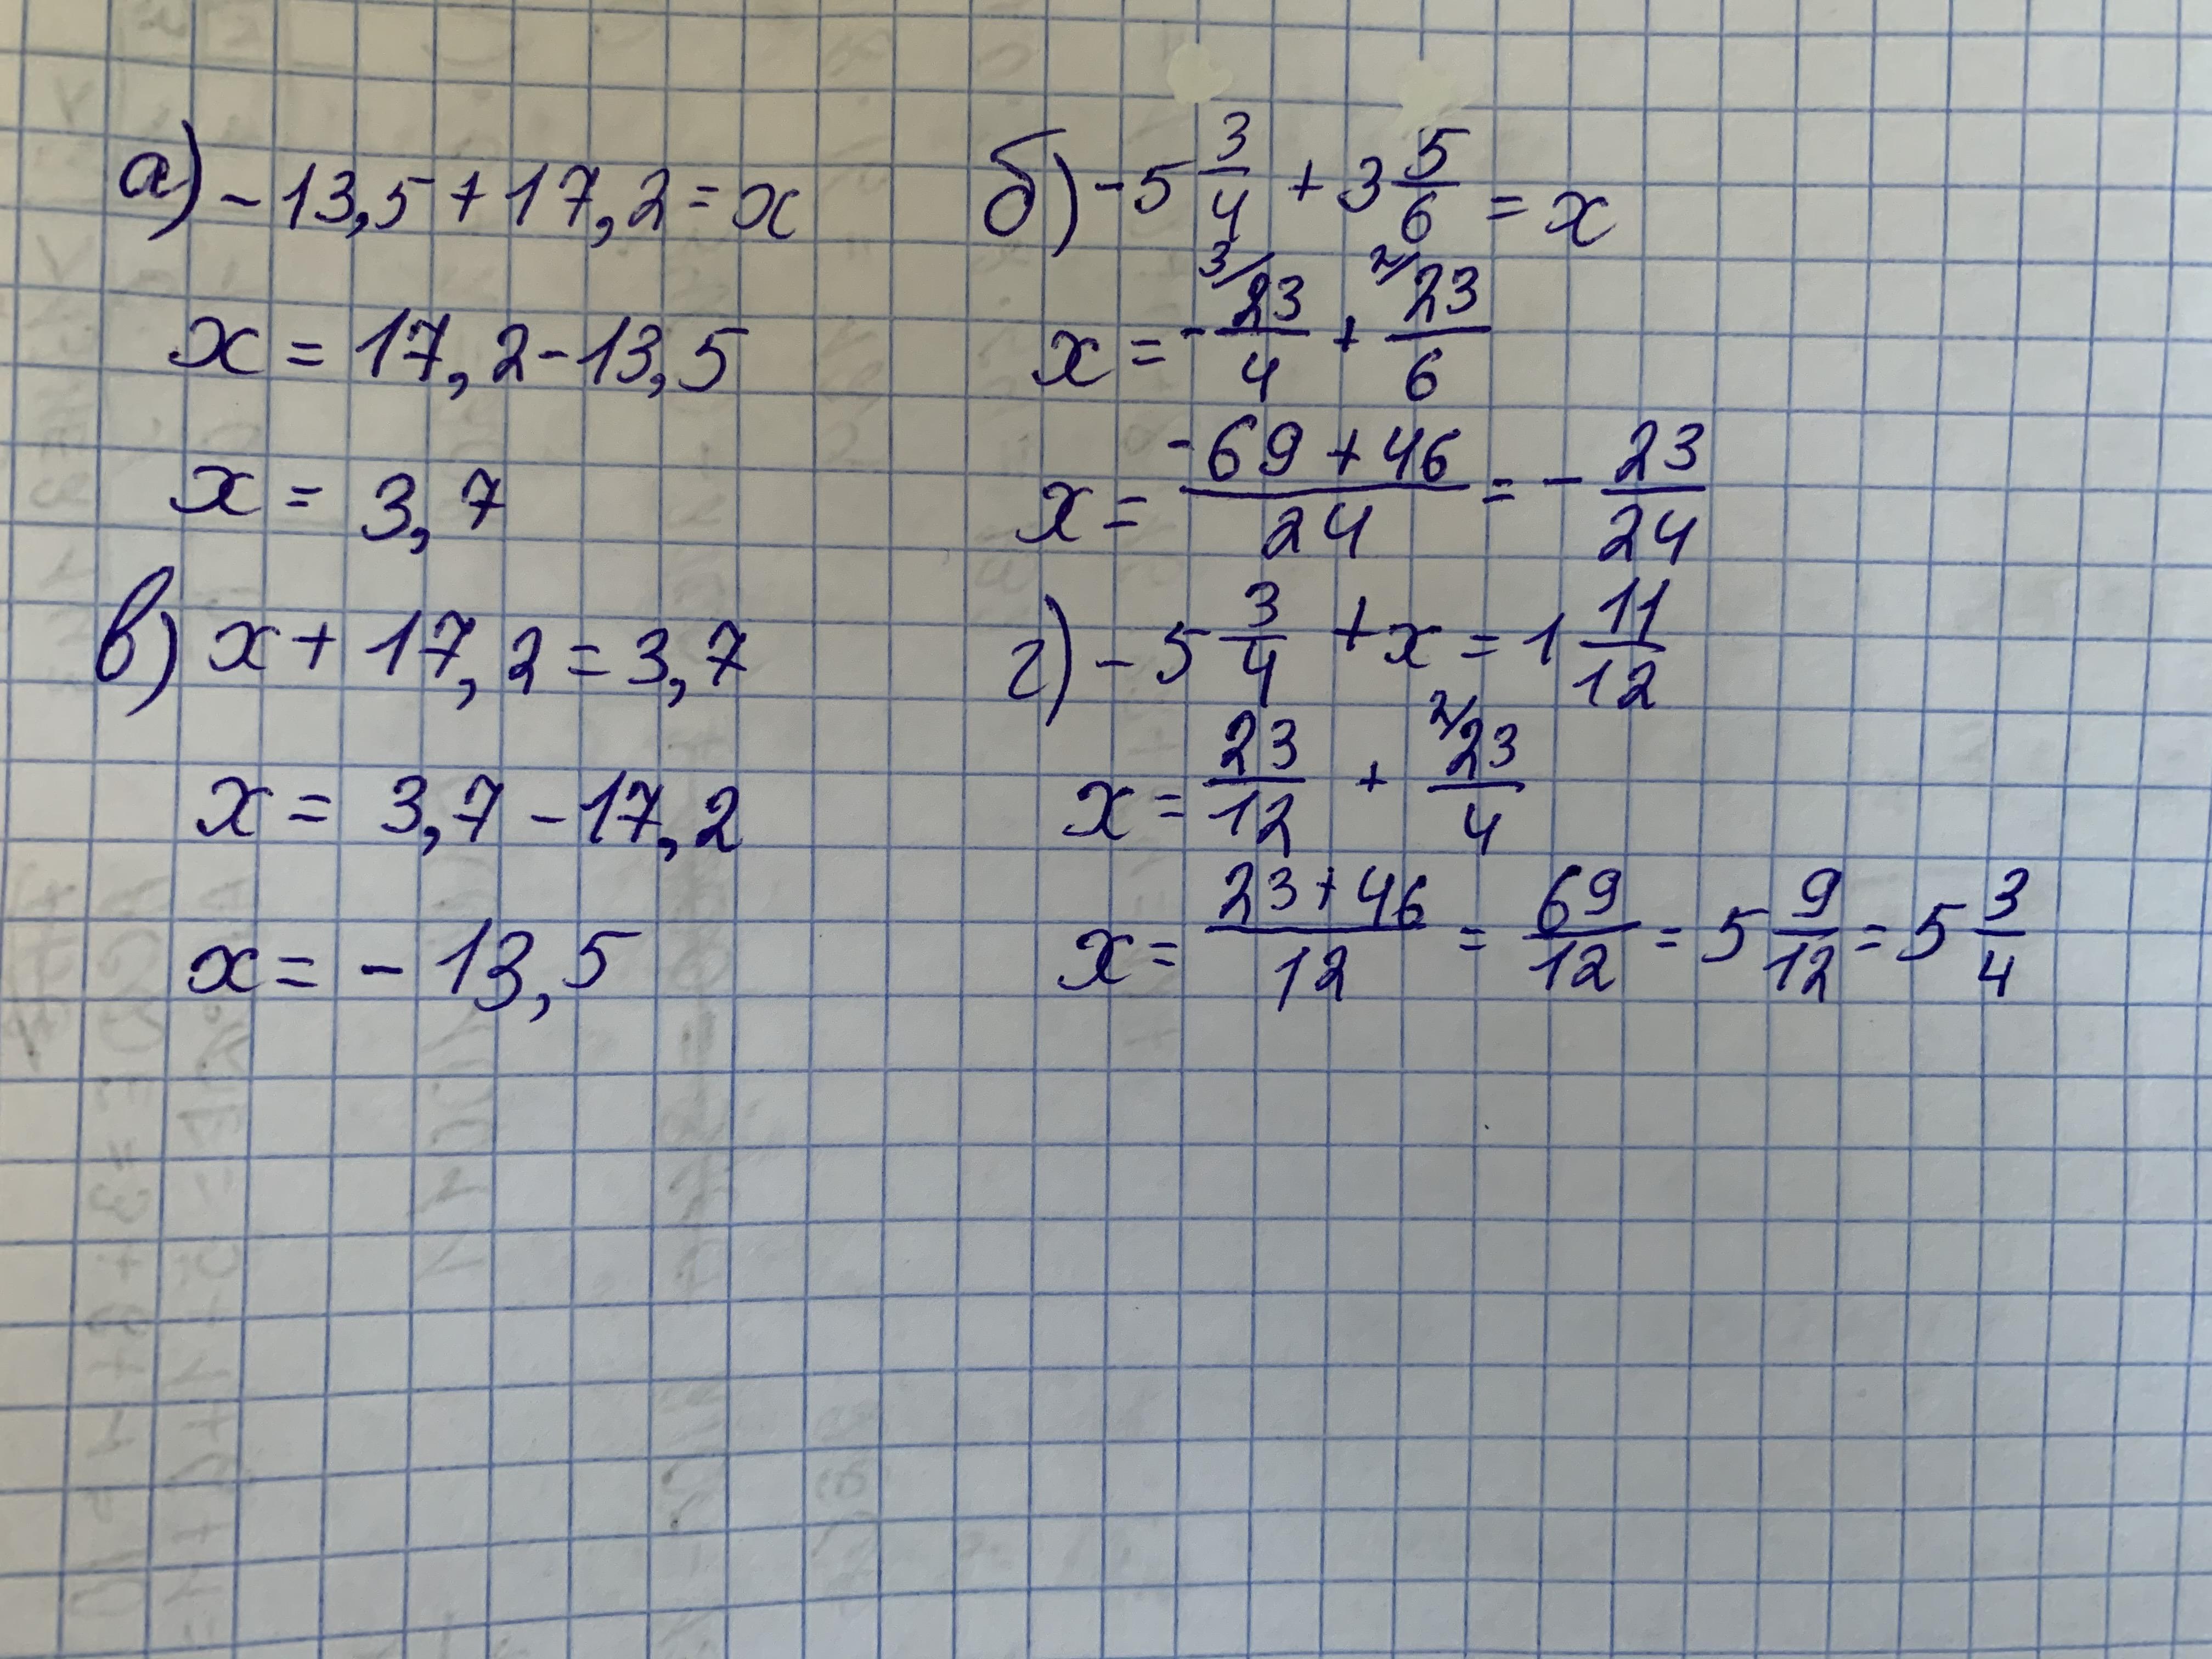 а) -13,5 + 17,2 = x
x = 17,2 - 13,5
x = 3,7
б) -5 3/4 + 3 5/6 = x
x = - 3/ 23/4 + 2/ 23/6
x = (-69 + 46)/24 = - 23/24
в) x + 17,2 = 3,7
x = 3,7 - 17,2
x = - 13,5
г) - 5 3/4 + x = 1 11/12
x = 23/12 + 2/ 23/4
x = (23 + 46)/12 = 69/12 = 5 9/12 = 5 3/4